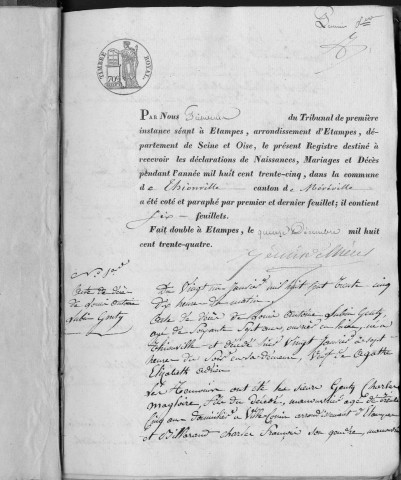 TIMBRE ROYAL
PAR NOUS Président du Tribunal de première
instance séant à Etampes, arrondissement d'Etampes, dé-
partement de Seine et Oise, le présent Registre destiné à
recevoir les déclarations de Naissances, Mariages et Décès
pendant l'année mil huit cent trente-cinq, dans la commune
de Thionville canton de Méréville
a été coté et paraphé par premier et dernier feuillet; il contient
Six feuillets.
Fait double à Etampes, le quinze Décembre mil huit
cent trente-quatre.
N.º 1er
Acte de décès
de Louis antoine
aubin Gouty
Du Vingt un janvier mil huit cent trente cinq
Dix heures du matin
Acte de décès de Louis antoine aubin Gouty,
agé de Soixante Sept ans, né a
Thionville et décédé hier Vingt janvier a Sept
heures du Soir en Sa demeure, Veuf de agathe
Elizabeth
Les Temoins ont été les sieurs Gouty Charles
magloire, fils du Décédé, manouvrier agé de trente
Cinq ans domicilié a arrondissement d'Etampes
et Billarand charles François son gendre, manouvrier